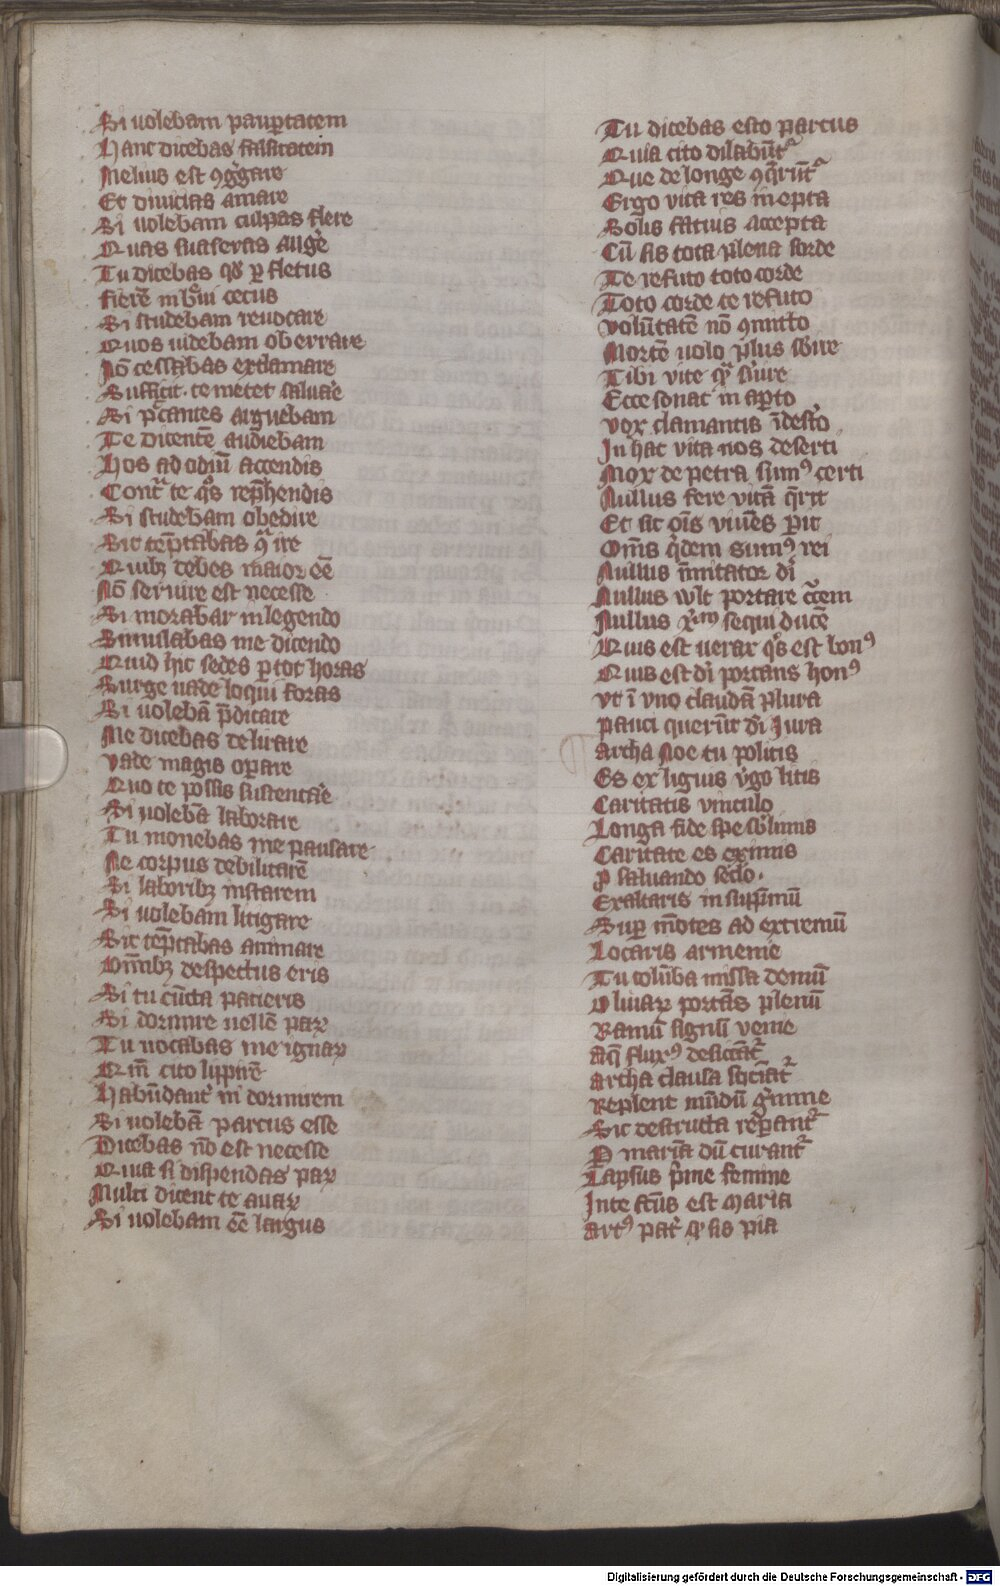 Si uolebam paup̄tatem
Hanc dicebas falsitatem
Melius est ꝯg̾gare
Et diuicias amare
Si uolebam culpas flere
Quas suaseras aug̾e
Tu dicebas qd̾ ꝑ fletus
fierē in bͥui cecus
Si studebam reuocare
Quos uidebam oberrare
Nō cessabas exclamare
Sufficit temetet saluar̾e
Si pͨcantes arguebam
Te dicentē audiebam
Hos ad odiū accendis
Cont̾ te qͦs rep̄hendis
Si studebam obedire
Sic tēptabas qͣ ire
Quibꝫ debes maior eē
Nō seruire est necesse
Si morabar in legendo
Simulabas me dicendo
Quid hic sedes ꝑ tot horas
Surge uade loqui foras
Si uolebā p̄dicare
Me dicebas delirare
Vade magis oꝑare
Quo te possis sustentar̾e
Si uolebā laborare
Tu monebas me pausare
Ne corpus debilitarē
Si laboribꝫ instarem
Si uolebam litigare
Sic tēptabas animare
Om̄ibꝫ despectus eris
Si tu cūcta pacieris
Si dormire uellē paꝝ
Tu uocabas me ignaꝝ
Qm̄ cito lippirē
Habūdant̾ ni dormirem
Si uolebā parcus esse
Dicebas nō est necesse
Quia si dispendas paꝝ
Multi dicent te auaꝝ
Si uolebam eē largus
Tu dicebas esto parcus
Quia cito dilabūt̾
Que de longe ꝯqͥrūt̾
Ergo vita res inepta
Solis fatuis accepta
Cū sis tota plena sorde
Te refuto toto corde
Toto corde te refuto
Volūtatē nō ꝯmuto
Mortē uolo p̄lus sb̾ire
Tibi vite qͣ sͬuire
Ecce sonat in aꝑto
Vox clamantis ī desͬto
In hac vita nos deserti
Mox de petra sumꝰ certi
Nullus fere vitā qͣrit
Et sic oīs viuēs ꝑit
Om̄s qͥdem sumꝰ rei
Nullus īmitator di̾
Nullus wlt portare cͬcem
Nullus xͬm̄ sequi ducē
Quis est uerax qͥs est bonꝰ
Quis est di̾ portans honꝰ
Vt ī vno claudā plura
Pauci querūt di̾ Jura
Archa Noe tu politis
Es ex lignis v̾go litis
Caritatis vinculo
Longa fide spe sb̾limis
Caritate es eximis
Ꝓ saluando sclo̾
Exaltaris in supͬmū
Suꝑ mōtes ad extremū
Locaris armenie
Tu colūba missa demū
Oliuaꝝ portās plenū
Ramū signū venie
Aq̄ fluxꝰ desiccāt̾
Archa clausa sociāt̾
Replent mūdū gͬmine
Sic destructa reꝑant̾
Ꝑ mariā dū curant̾
Lapsus pͥme femine
In te fctūs est Maria
Artꝰ pat̾ qͥ sis pia
Digitalisierung gefördert durch die Deutsche Forschungsgemeinschaft - DFG